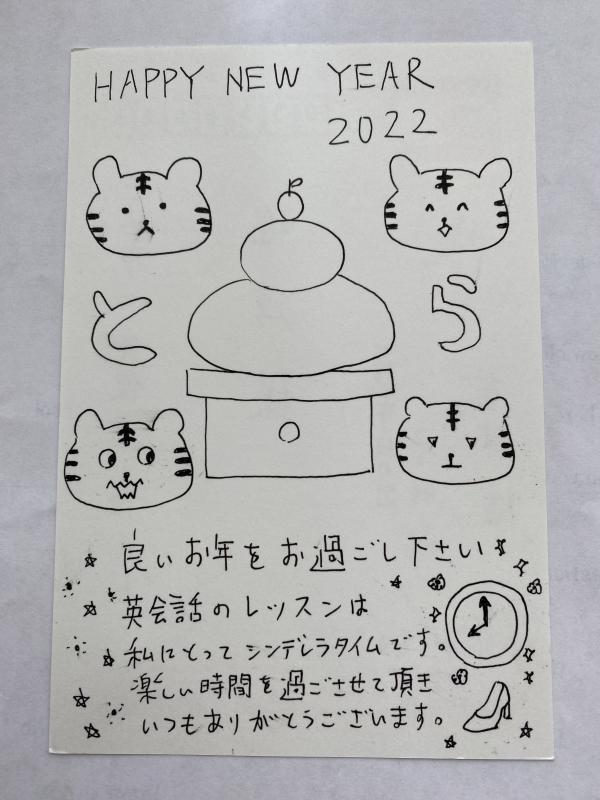 HAPPY NEW YEAR
2022
とら
良いお年をお過ごし下さい
英会話のレッスンは
私にとってシンデレラタイムです。
楽しい時間を過ごさせて頂き
いつもありがとうございます。